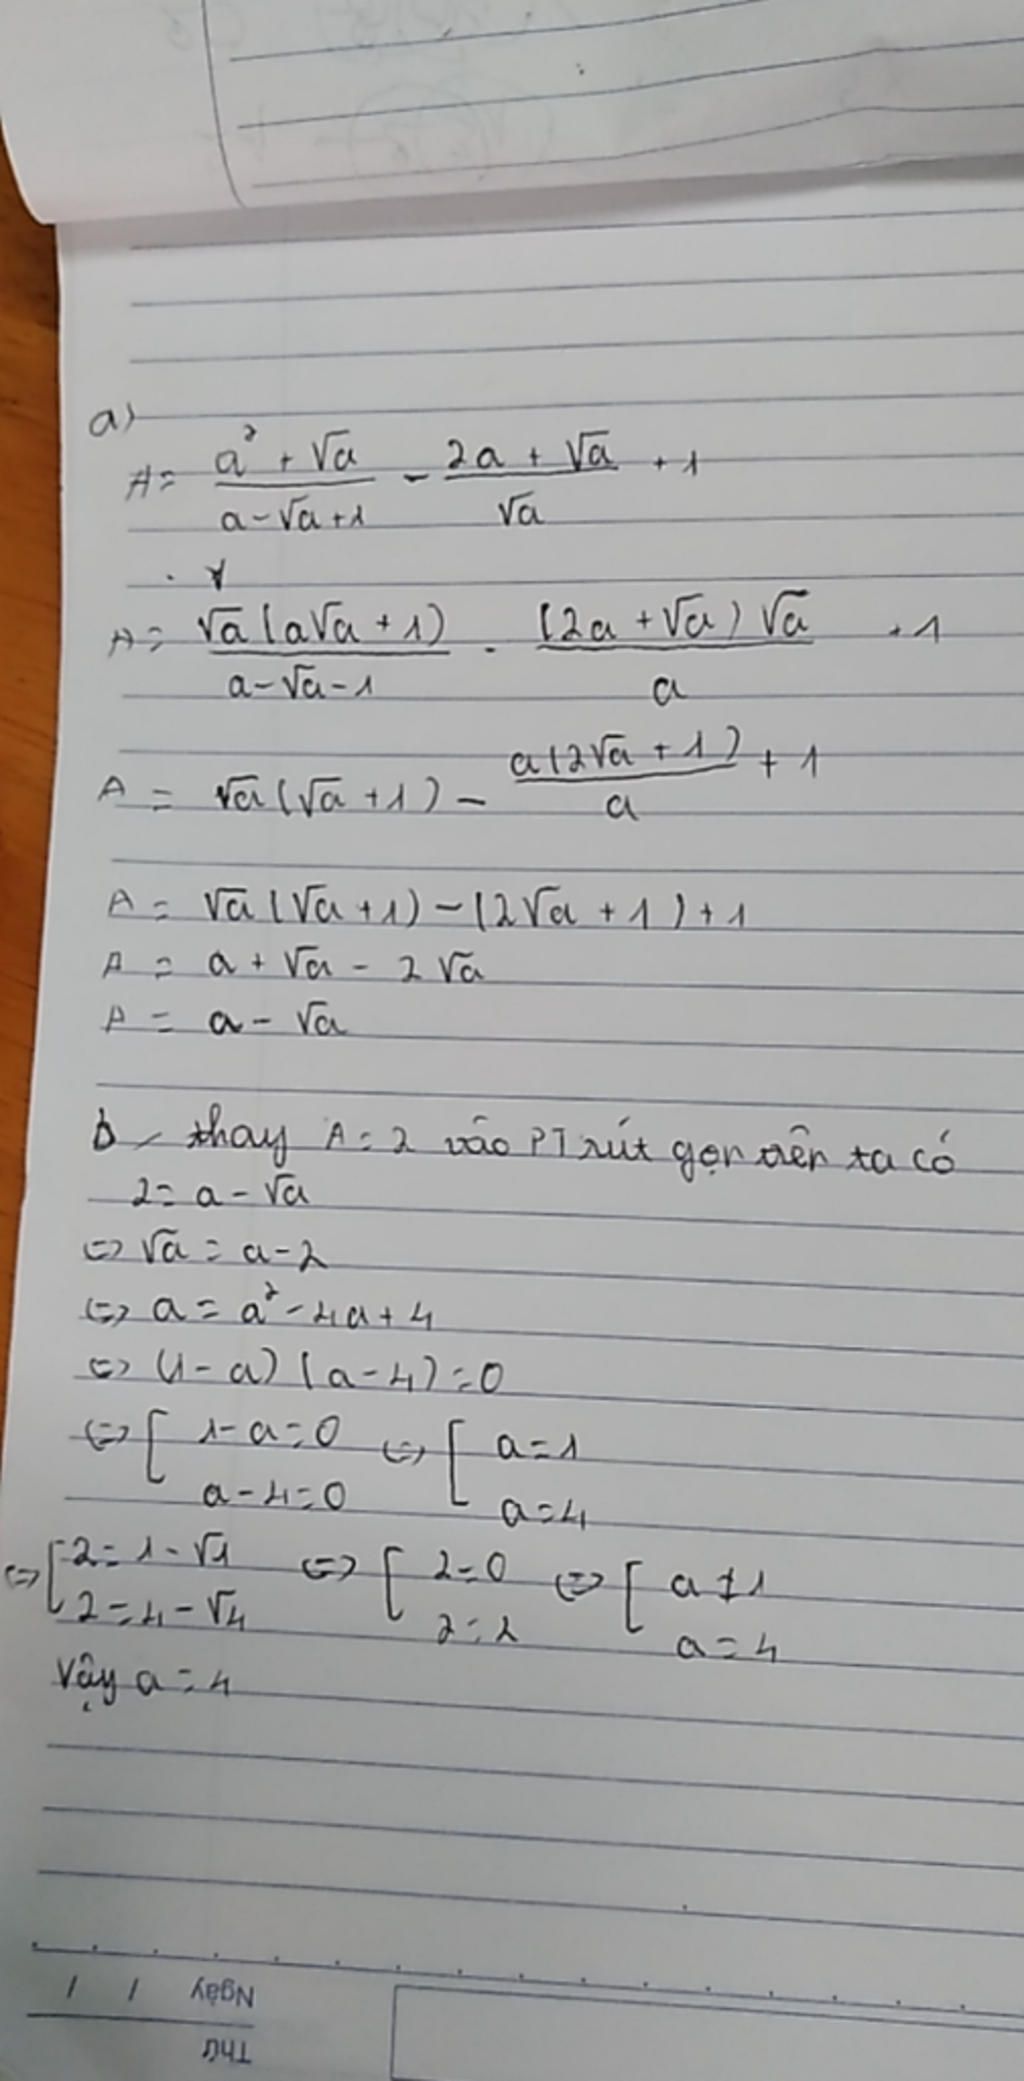 a)
A = (a² + √a)/(a - √a + 1) - (2a + √a)/√a + 1
A = √a(a√a + 1)/(a - √a - 1) - (2a + √a)√a/a + 1
A = √a(√a + 1) - a(2√a + 1)/a + 1
A = √a(√a + 1) - (2√a + 1) + 1
A = a + √a - 2√a
A = a - √a
b, thay A = 2 vào PT rút gọn trên ta có
2 = a - √a
⇔ √a = a - 2
⇔ a = a² - 4a + 4
⇔ (1 - a)(a - 4) = 0
⇔ [ 1 - a = 0 ⇔ [ a = 1
a - 4 = 0 a = 4
⇔ [ 2 = 1 - √1 ⇔ [ 2 = 0 ⇔ [ a ≠ 1
2 = 4 - √4 2 = 2 a = 4
Vậy a = 4
/ / Ngày
Thứ